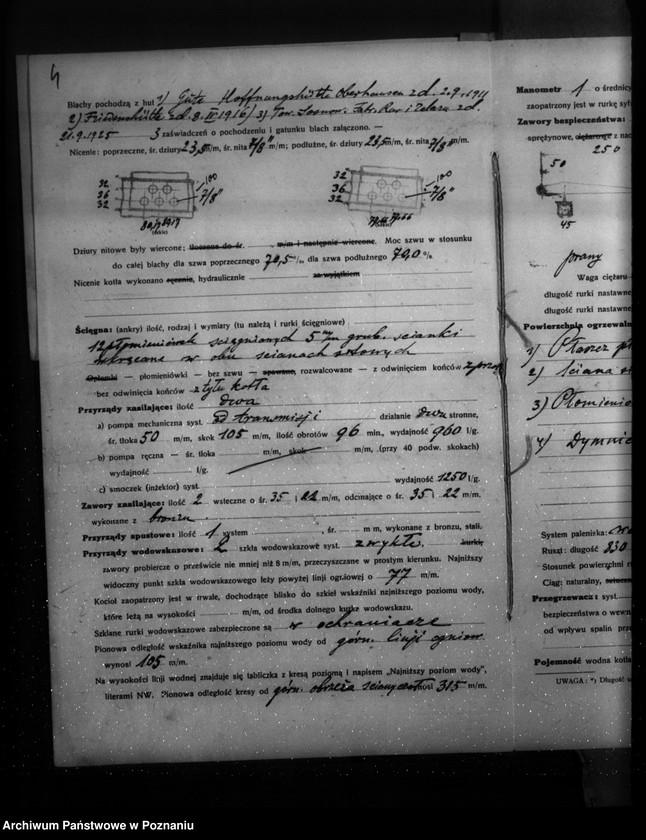 4
Blachy pochodzą z hut 1) Gute Hoffnungshütte Oberhausen zd. 2.9.1911
2) Friedenshütte zd. 8.II 1916/ 3) Tow. Sosnow. Fabr. Rur i Żelaza zd.
21.9.1925 3 zaświadczeń o pochodzeniu i gatunku blach załączono. —
Nicenie: poprzeczne, śr. dziury 23,5 m/m, śr. nita 7/8" m/m; podłużne, śr. dziury 23,5 m/m, śr. nita 7/8" m/m.
32
36
32
100
7/8"
32
36
32
100
7/8"
Dziury nitowe były wiercone; tłoczone do śr. m/m i następnie wiercone. Moc szwu w stosunku
do całej blachy dla szwa poprzecznego 70,5 %, dla szwa podłużnego 70,0 %
Nicenie kotła wykonano ręcznie, hydraulicznie za wyjątkiem
Ścięgna: (ankry) ilość, rodzaj i wymiary (tu należą i rurki ścięgniowe)
12 płomieniówek ścięgnianych 5 m/m grub. scianki
wkręcane w obu scianach sitowych
Opłomki — płomieniówki — bez szwu — spawane, rozwalcowane — z odwinięciem końców z przodu
bez odwinięcia końców z tyłu kotła
Przyrządy zasilające: ilość dwa
a) pompa mechaniczna syst. od transmisji działanie dwu stronne,
śr. tłoka 50 m/m, skok 105 m/m, ilość obrotów 96 min., wydajność 960 l/g.
b) pompa ręczna — śr. tłoka m/m, skok m/m, (przy 40 podw. skokach)
wydajność l/g.
c) smoczek (inżektor) syst. wydajność 1250 l/g.
Zawory zasilające: ilość 2 wsteczne o śr. 35 i 22 m/m, odcinające o śr. 35 i 22 m/m.
wykonane z bronzu.
Przyrządy spustowe: ilość 1 system , śr. m m, wykonane z bronzu, stali.
Przyrządy wodowskazowe: 2 szkła wodowskazowe syst. zwykłe, kurki,
zawory probiercze o prześwicie nie mniej niż 8 m/m, przeczyszczane w prostym kierunku. Najniższy
widoczny punkt szkła wodowskazowego leży powyżej linji ogniowej o 77 m/m.
Kocioł zaopatrzony jest w trwałe, dochodzące blisko do szkieł wskaźniki najniższego poziomu wody,
które leżą na wysokości m/m, od środka dolnego kurka wodowskazu.
Szklane rurki wodowskazowe zabezpieczone są w ochraniacze
Pionowa odległość wskaźnika najniższego poziomu wody od górn. linji ogniow.
wynosi 105 m/m.
Na wysokości linji wodnej znajduje się tabliczka z kresą poziomą i napisem „Najniższy poziom wody",
literami NW. Pionowa odległość kresy od górn. obrzeża sciany czoł wynosi 315 m/m.
Manometr 1 o średnicy
zaopatrzony jest w rurkę syf
Zawory bezpieczeństwa:
sprężynowe, ciężarowe z nac
250
50
45
prany
Waga ciężaru
długość rurki nastawne
długość rurki nastawne
Powierzchnia ogrzewal
1) Płaszcz
2) sciana
3) Płomienio
4) Dymnic
System paleniska:
Ruszt: długość 830
Stosunek powierzchni r
Ciąg: naturalny,
Przegrzewacz: syst.
bezpieczeństwa o wewn
od wpływu spalin prz
Pojemność wodna kotła
UWAGA: *) Długość
Archiwum Państwowe w Poznaniu